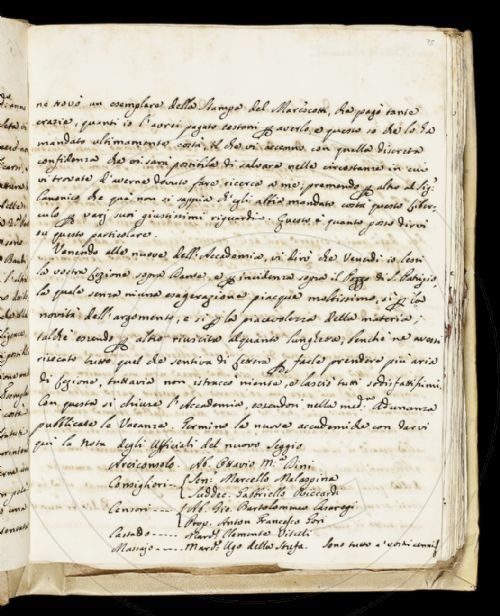 75
ne trovò un esemplare della Stampa del Marescotti, che pagò tante
crazie, quanti io l'avrei pagato testoni per averlo, e questo so che lo ha
mandato ultimamente costà, il che vi accenno con quella discreta
confidenza che vi sarà possibile di salvare nelle circostanze in cui
vi trovate d'avere dovuto fare ricerca a me; premendo per altro al Sig.
Canonico che quì non si sappia ch'egli abbia mandato costà questo Liber-
culo per varj suoi giustissimi riguardi. Questo è quanto posso dirvi
su questo particolare.
Venendo alle nuove dell'Accademia, vi dirò che Venerdì io lessi
la vostra Lezione sopra Dante, e per incidenza sopra il Pozzo di S. Patrizio,
la quale senza niuna esagerazione piacque moltissimo, sì per la
novità dell'argomento, e sì per la piacevolezza della materia;
talchè essendo per altro riuscita alquanto lunghetta, benchè ne avessi
risecato tutto quel che sentiva di lettera per farle prendere più aria
di Lezione, tuttavia non istraccò niente, e lasciò tutti sodisfattissimi.
Con questa si chiuse l'Accademia, essendosi nella med.a Adunanza
pubblicate le Vacanze. Termino le nuove accademiche con darvi
quì la Nota degli Uffiziali del nuovo Seggio
Arciconsolo. Ab. Ottavio M.a Dini
Consiglieri -- Sen. Marcello Malaspina
Suddec. Gabbriello Riccardi
Censori ---- Ab. Gio. Bartolommeo Casaregi
Prop. Anton Francesco Gori
Castaldo ---- March. Clemente Vitelli
Massajo ---- March. Ugo della Stufa. Sono tutto a' vostri cenni